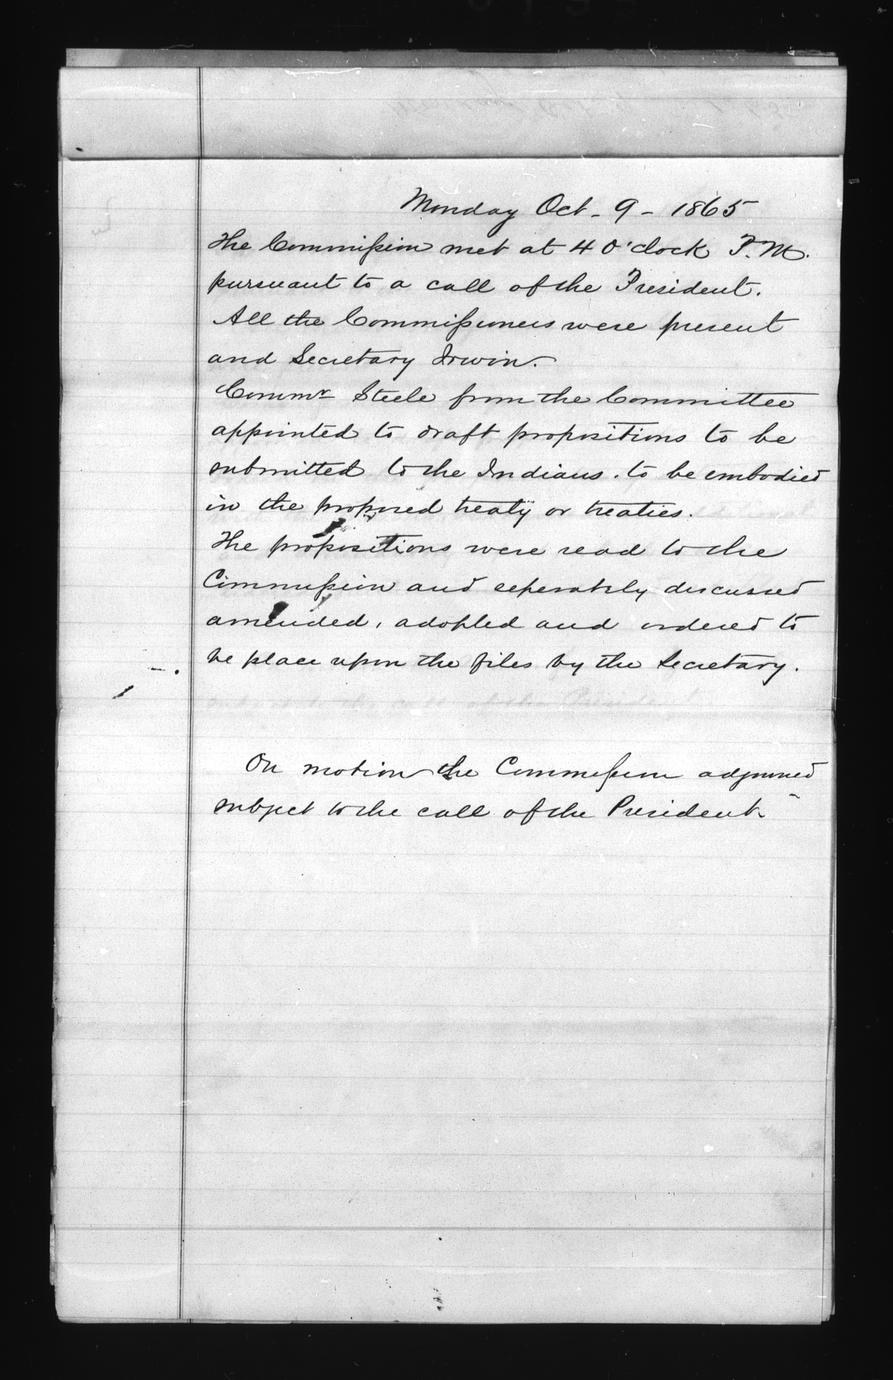 Monday Oct. 9 - 1865
The Commission met at 4 O'clock P.M.
pursuant to a call of the President.
All the Commissioners were present
and Secretary Irwin.
Commr Steele from the Committee
appointed to draft propositions to be
submitted to the Indians. to be embodied
in the proposed treaty or treaties.
The propositions were read to the
Commission and seperately discussed
amended, adopted and ordered to
be place upon the files by the Secretary.
On motion the Commission adjourned
subject to the call of the President.